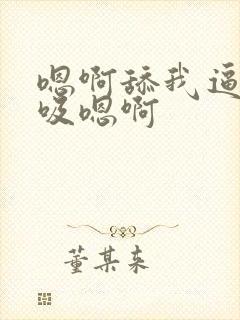 嗯啊舔我逼
吸嗯啊
董某来